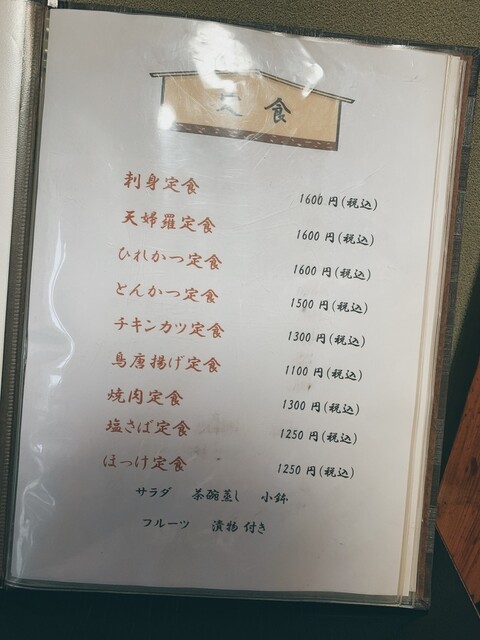 定食
刺身定食 1600円(税込)
天婦羅定食 1600円(税込)
ひれかつ定食 1600円(税込)
とんかつ定食 1500円(税込)
チキンカツ定食 1300円(税込)
鳥唐揚げ定食 1100円(税込)
焼肉定食 1300円(税込)
塩さば定食 1250円(税込)
ほっけ定食 1250円(税込)
サラダ 茶碗蒸し 小鉢
フルーツ 漬物付き